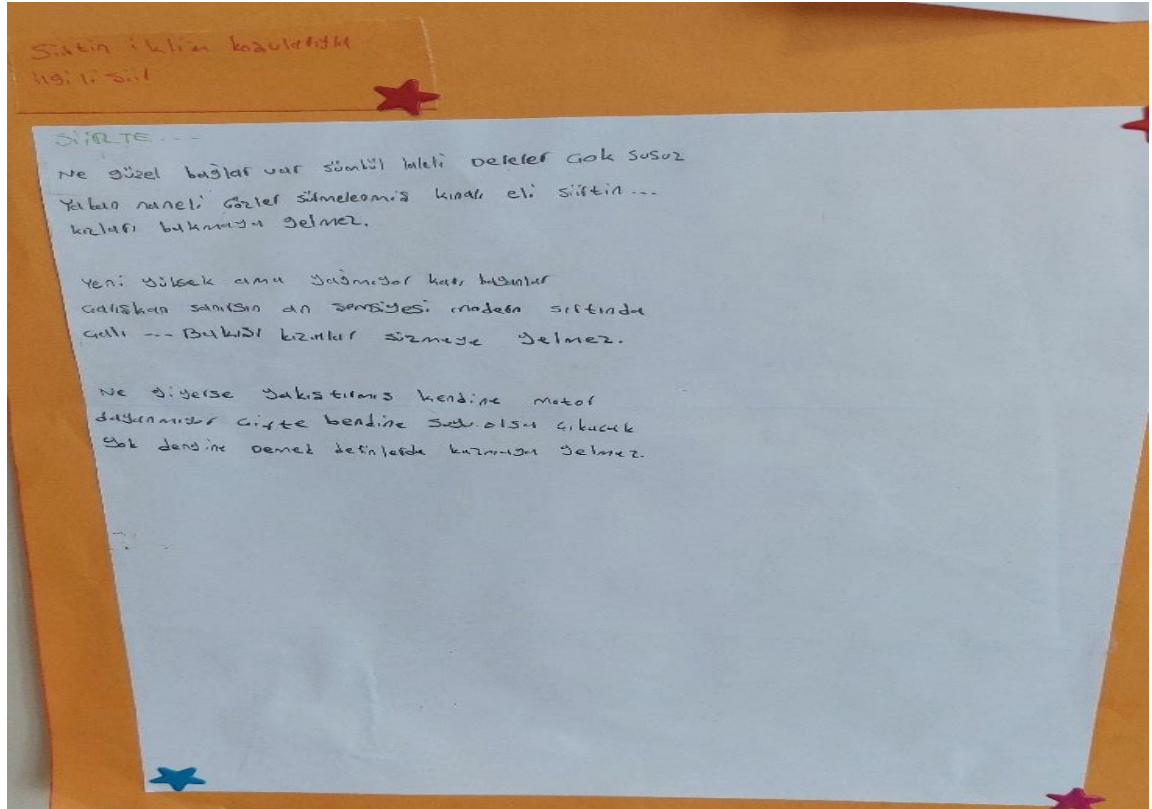 Siirtin iklim koşullarıyla
ilgili şiir
SİİRTE...
Ne güzel bağlar var sümbül laleli Dereler Çok susuz
Yaban naneli Gözler sürmelenmiş kınalı eli Siirtin...
kızları bakmaya gelmez.
Yeni yüksek ama yağmıyor karı bayanlar
Çalışkan sanırsın arı şemsiyesi modern sırtında
... Bakışı kızınlar süzmeye gelmez.
Ne giyerse yakıştırmış kendine motor
dayanmıyor Çifte bendine suyu olsa çıkacak
yok dengine Demez derinlerde kazmaya gelmez.